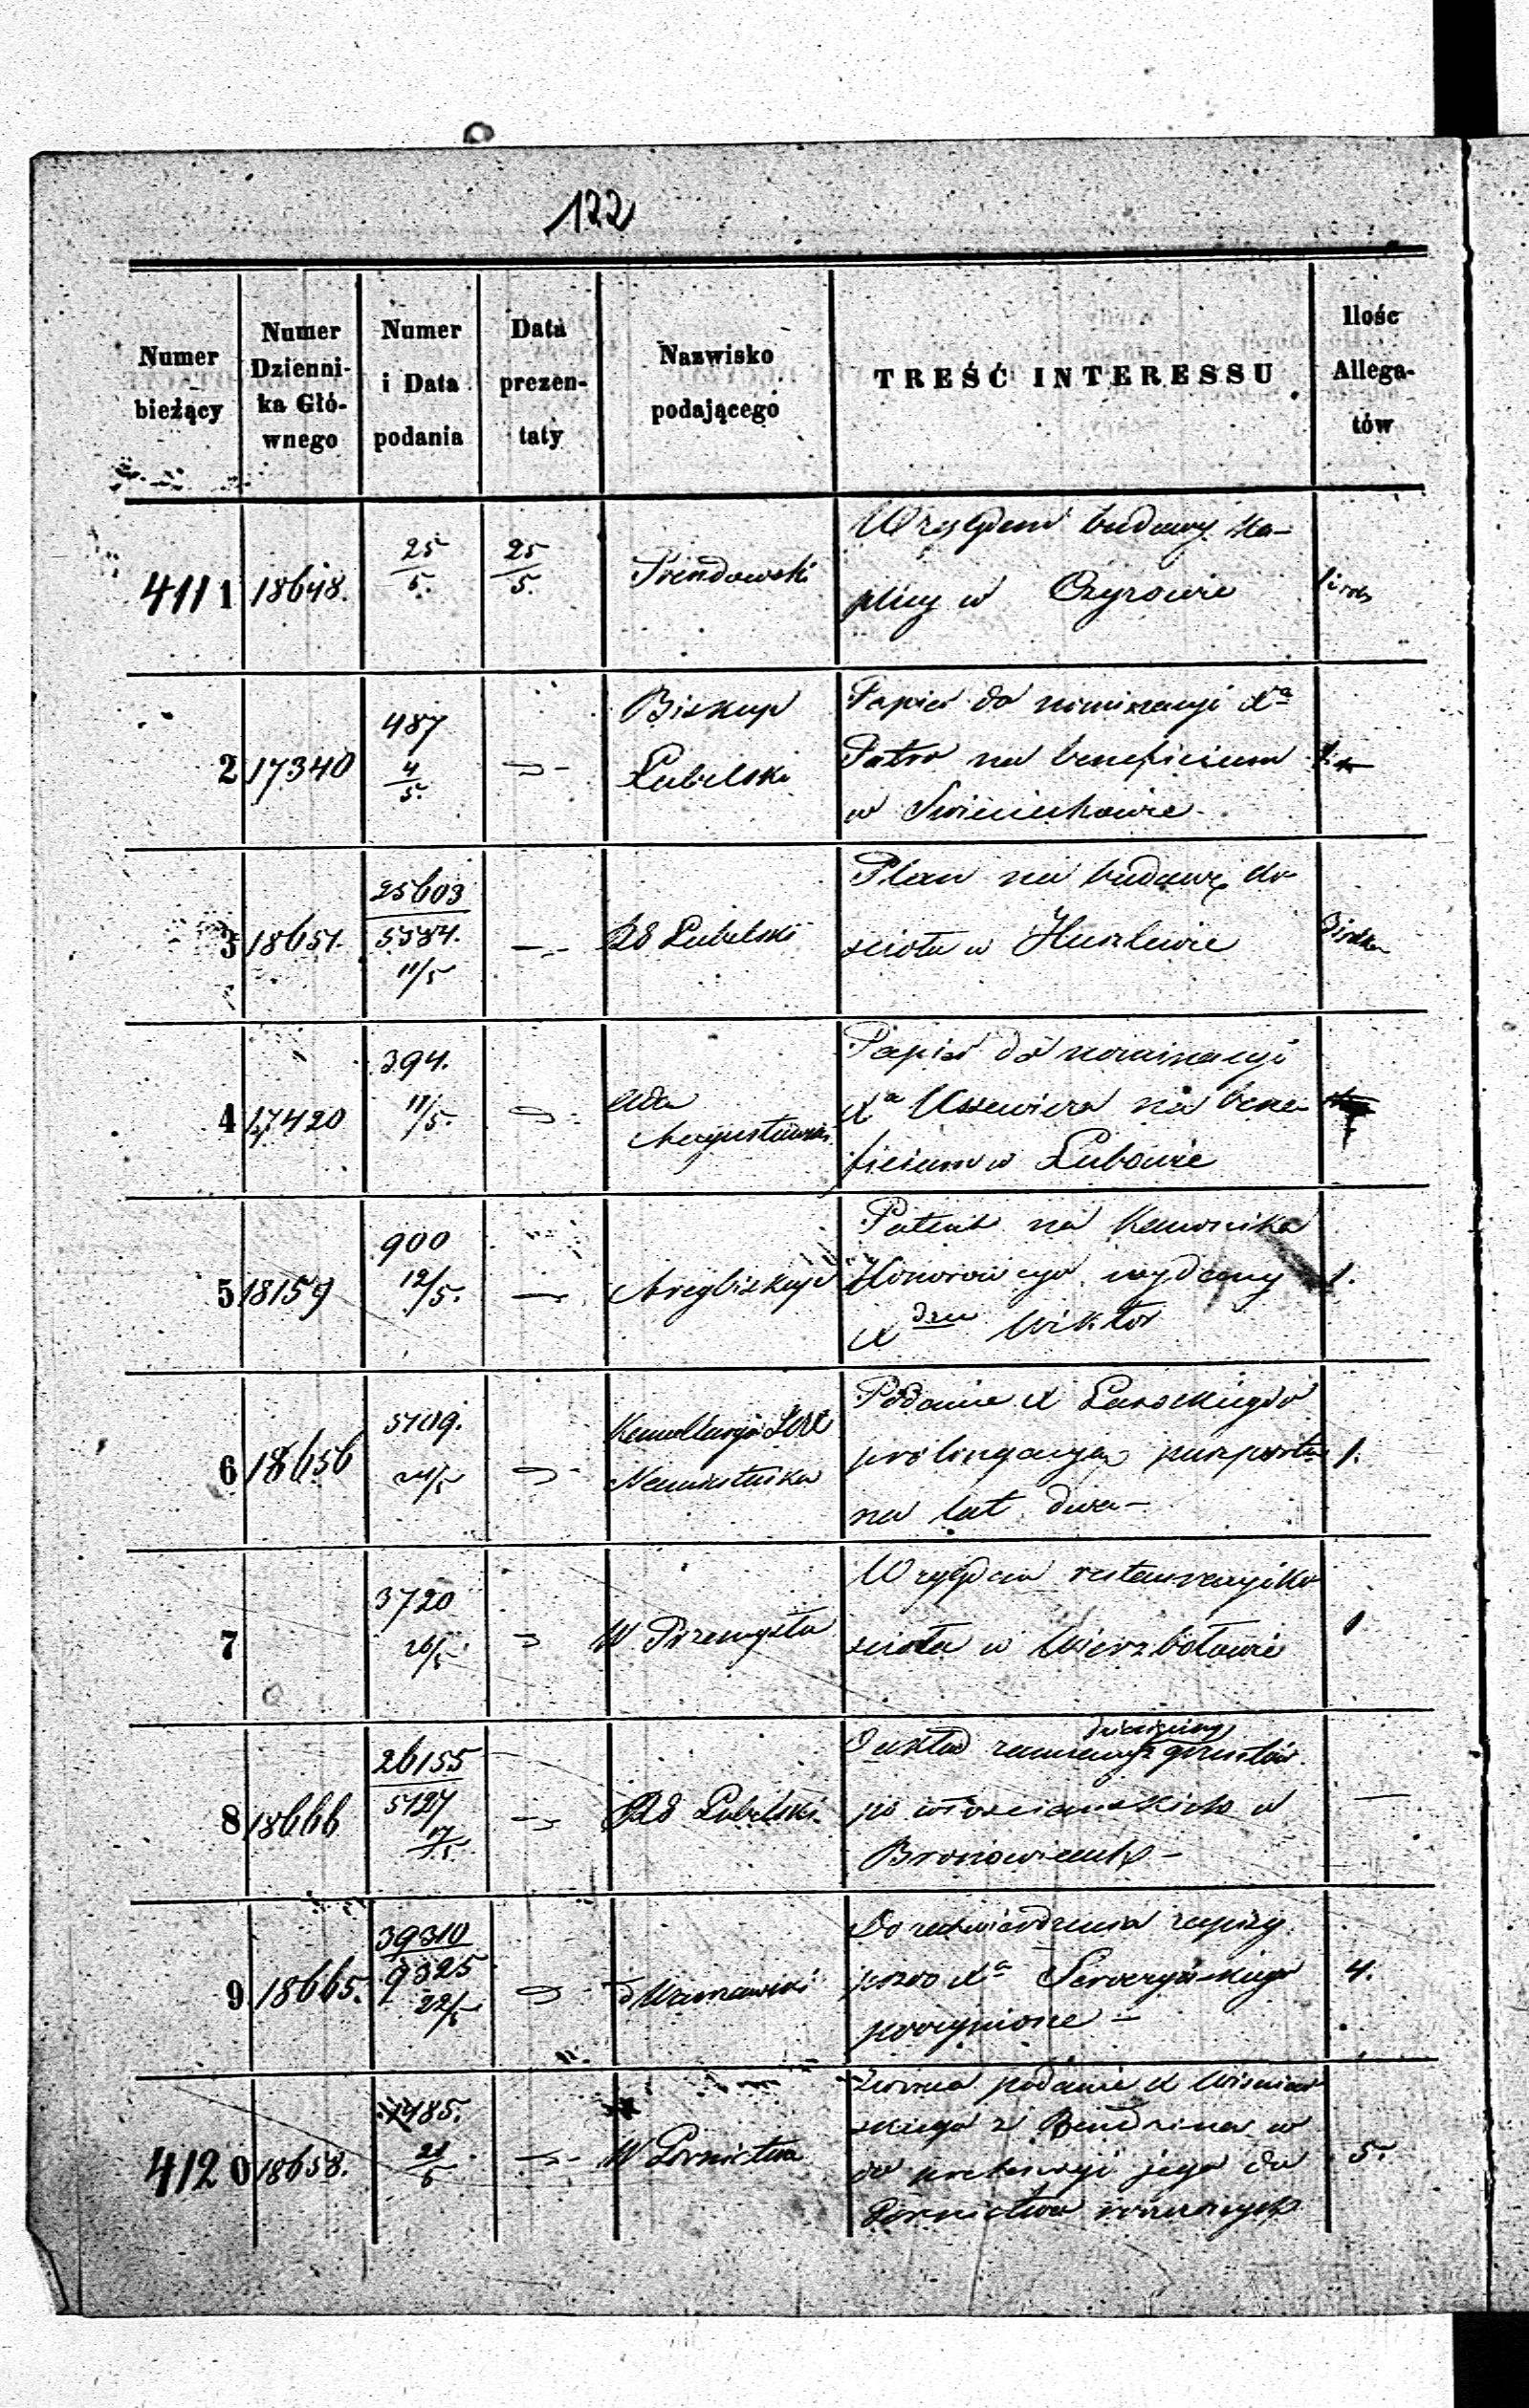 122
Numer bieżący
Numer Dzienni-ka Głó-wnego
Numer i Data podania
Data prezen-taty
Nazwisko podającego
TREŚĆ INTERESSU
Ilość Allega-tów
4111 18648. 25/5. 25/5. Trendowski
Względem budowy Ka-
plicy w Czyżowie
2 17340 487 4/5. Biskup Lubelski
Papier do nominacyi Xa
Patro na beneficium
w Swieciechowie
3 18651. 25603 5584. 11/5 Rd Lubelski
Plan na budowę ko
sciola w Huszlewie
4 17420 394. 11/5. Adm Augustowski
Papier do nominacyi
Xa na bene
ficium w Lubowie
5 18159 900 12/5. Arcybiskup
Patent na Kanonika
Honorowego wydany
X Wiktor
6 18656 5709. Kancellarya Namiestnika
Podanie X
prolongacyą paszportu 1.
na lat dwa
7 3720 26/5 W Przemysła
Względem restauracyi ko
sciola w Wierzbołowie 1
8 18666 26155 5727 17/5. Rd Lubelski
zamiany gruntów
po włosciańskich w
Bronowicach
9 18665. 39310 9325 22/5 d Warszawski
Do zatwierdzenia zapisy
przez Xa 4.
poczynione
4120 18658. 485. 21/5 W Górnictwa
Zwraca podanie X
skiego z Bendzina w
do pretensyi jego do 5.
Górnictwa